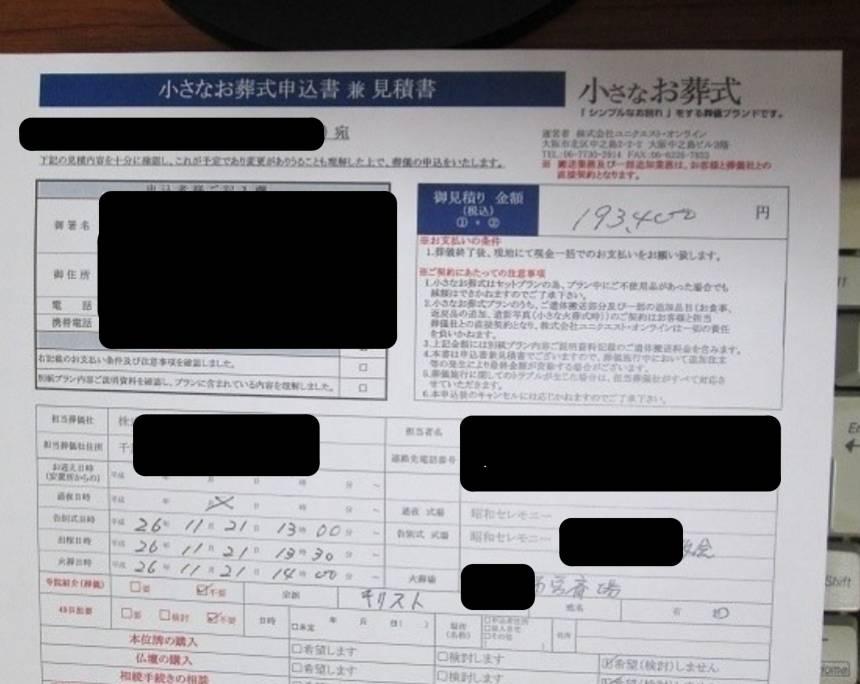 小さなお葬式申込書 兼 見積書
小さなお葬式
「シンプルなお別れ」をする葬儀ブランドです。
宛
運営者 株式会社ユニクエスト・オンライン
大阪市北区中之島2-2-2 大阪中之島ビル2階
※ 搬送業務及び一部追加業務は、お客様と葬儀社との
直接契約となります。
下記の見積内容を十分に確認し、これが予定であり変更がありうることも理解した上で、葬儀の申込をいたします。
御署名
御住所
電 話
携帯電話
右記載のお支払い条件及び注意事項を確認しました。 □
別紙プラン内容ご説明資料を確認し、プランに含まれている内容を理解しました。 □
御見積り 金額
(税込)
①+②
193,400 円
※お支払いの条件
1.葬儀終了後、現地にて現金一括でのお支払いをお願い致します。
※ご契約にあたっての注意事項
1.小さなお葬式はセットプランの為、プラン中にご不使用品があった場合でも
減額はできかねますのでご了承下さい。
2.小さなお葬式プランのうち、ご遺体搬送部分及び一部の追加品目(お食事、
返戻品の追加、遺影写真(小さな火葬式時))のご契約はお客様と担当
葬儀社との直接契約となり、株式会社ユニクエスト・オンラインは一切の責任
を負いかねます。
3.上記金額には別紙プラン内容ご説明資料記載のご遺体搬送料金を含みます。
4.本書は申込書兼見積書でございますので、葬儀施行中において追加注文
等の発生により最終金額が変動する場合がございます。
5.葬儀施行に関してのトラブルが生じた場合は、担当葬儀社がすべて対応さ
せていただきます。
6.本申込後のキャンセルには応じかねますのでご了承下さい。
担当葬儀社 株 担当者名
担当葬儀社住所 千 連絡先電話番号
お迎え日時 平成 年 月 日 時 分 ~
(安置所からの)
通夜日時 平成 年 月 日 時 分 ~ 通夜 式場 昭和セレモニー
告別式日時 平成 26年 11月 21日 13時 00分 ~ 告別式 式場 昭和セレモニー
出棺日時 平成 26年 11月 21日 13時 30分 ~
火葬日時 平成 26年 11月 21日 14時 00分 ~ 火葬場 市営斎場
寺院紹介(葬儀) □要 ☑不要 宗派 キリスト
□要 □検討 ☑不要 日時 □未定 年 月 日( ) 場所 (名称) □申込者住所 住所
本位牌の購入 □希望します □検討します ☑希望(検討)しません
仏壇の購入
相続手続きの相談 □希望します □検討します ☑希望(検討)しません